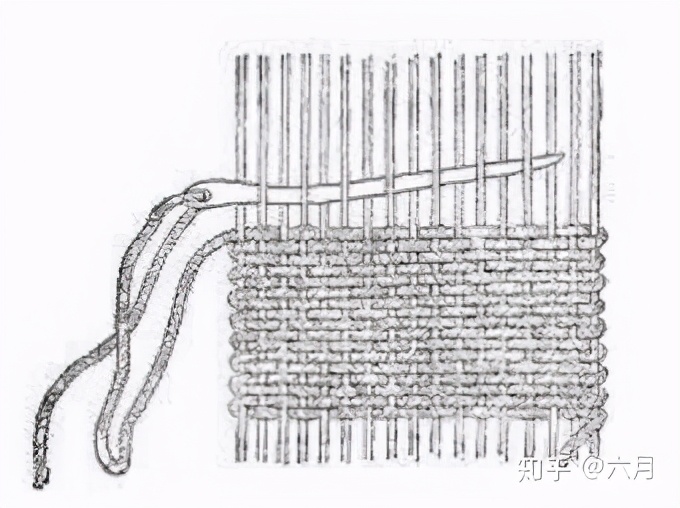 知乎 @六月